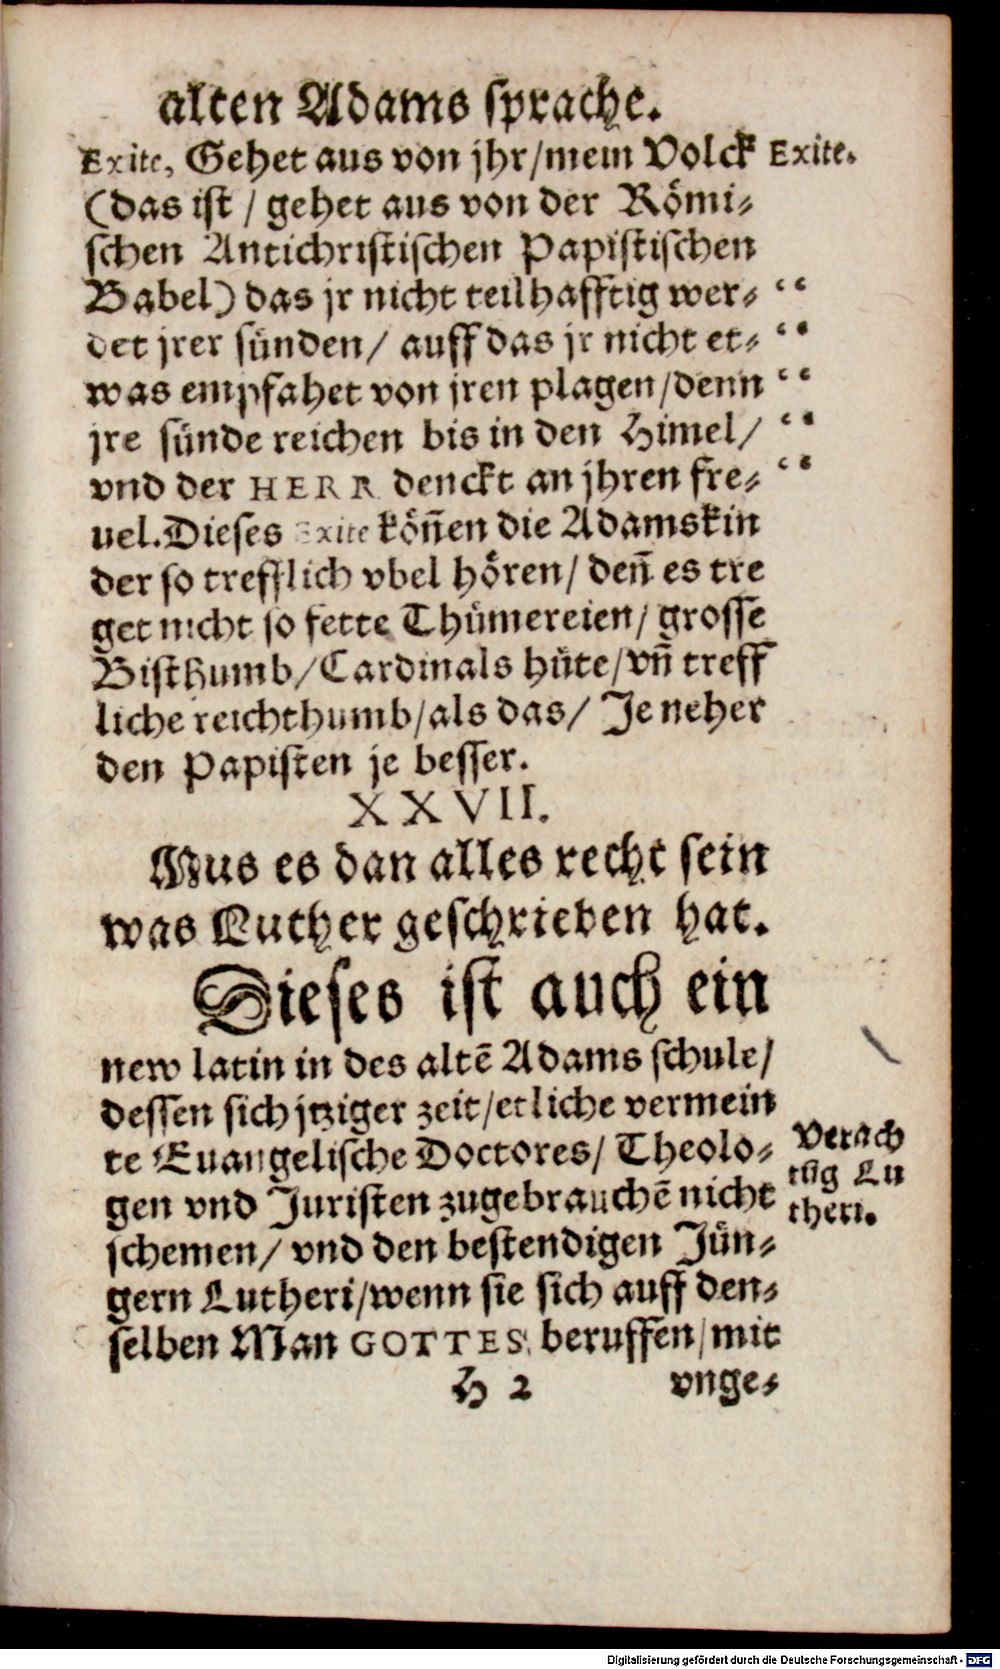 alten Adams sprache.
Exite, Gehet aus von jhr/mein Volck
Exite.
(das ist / gehet aus von der Römi⸗
schen Antichristischen Papistischen
Babel) das jr nicht teilhafftig wer⸗ “
det jrer sünden/ auff das jr nicht et⸗ “
was empfahet von jren plagen/denn “
jre sünde reichen bis in den Himel/ “
vnd der HERR denckt an jhren fre⸗ “
uel. Dieses Exite köñen die Adamskin
der so trefflich vbel hören/ deñ es tre
get nicht so fette Thümereien/ grosse
Bisthumb/Cardinals hüte/vñ treff
liche reichthumb/als das/ Je neher
den Papisten je besser.
XXVII.
Mus es dan alles recht sein
was Luther geschrieben hat.
Dieses ist auch ein
new latin in des altē Adams schule/
dessen sich jtziger zeit/etliche vermein
te Euangelische Doctores/ Theolo⸗
gen vnd Juristen zugebrauchē nicht
schemen/ vnd den bestendigen Jün⸗
gern Lutheri/wenn sie sich auff den⸗
selben Man GOTTES beruffen/mit
Verach
tūg Lu
theri.
H 2
vnge⸗
Digitalisierung gefördert durch die Deutsche Forschungsgemeinschaft - DFG